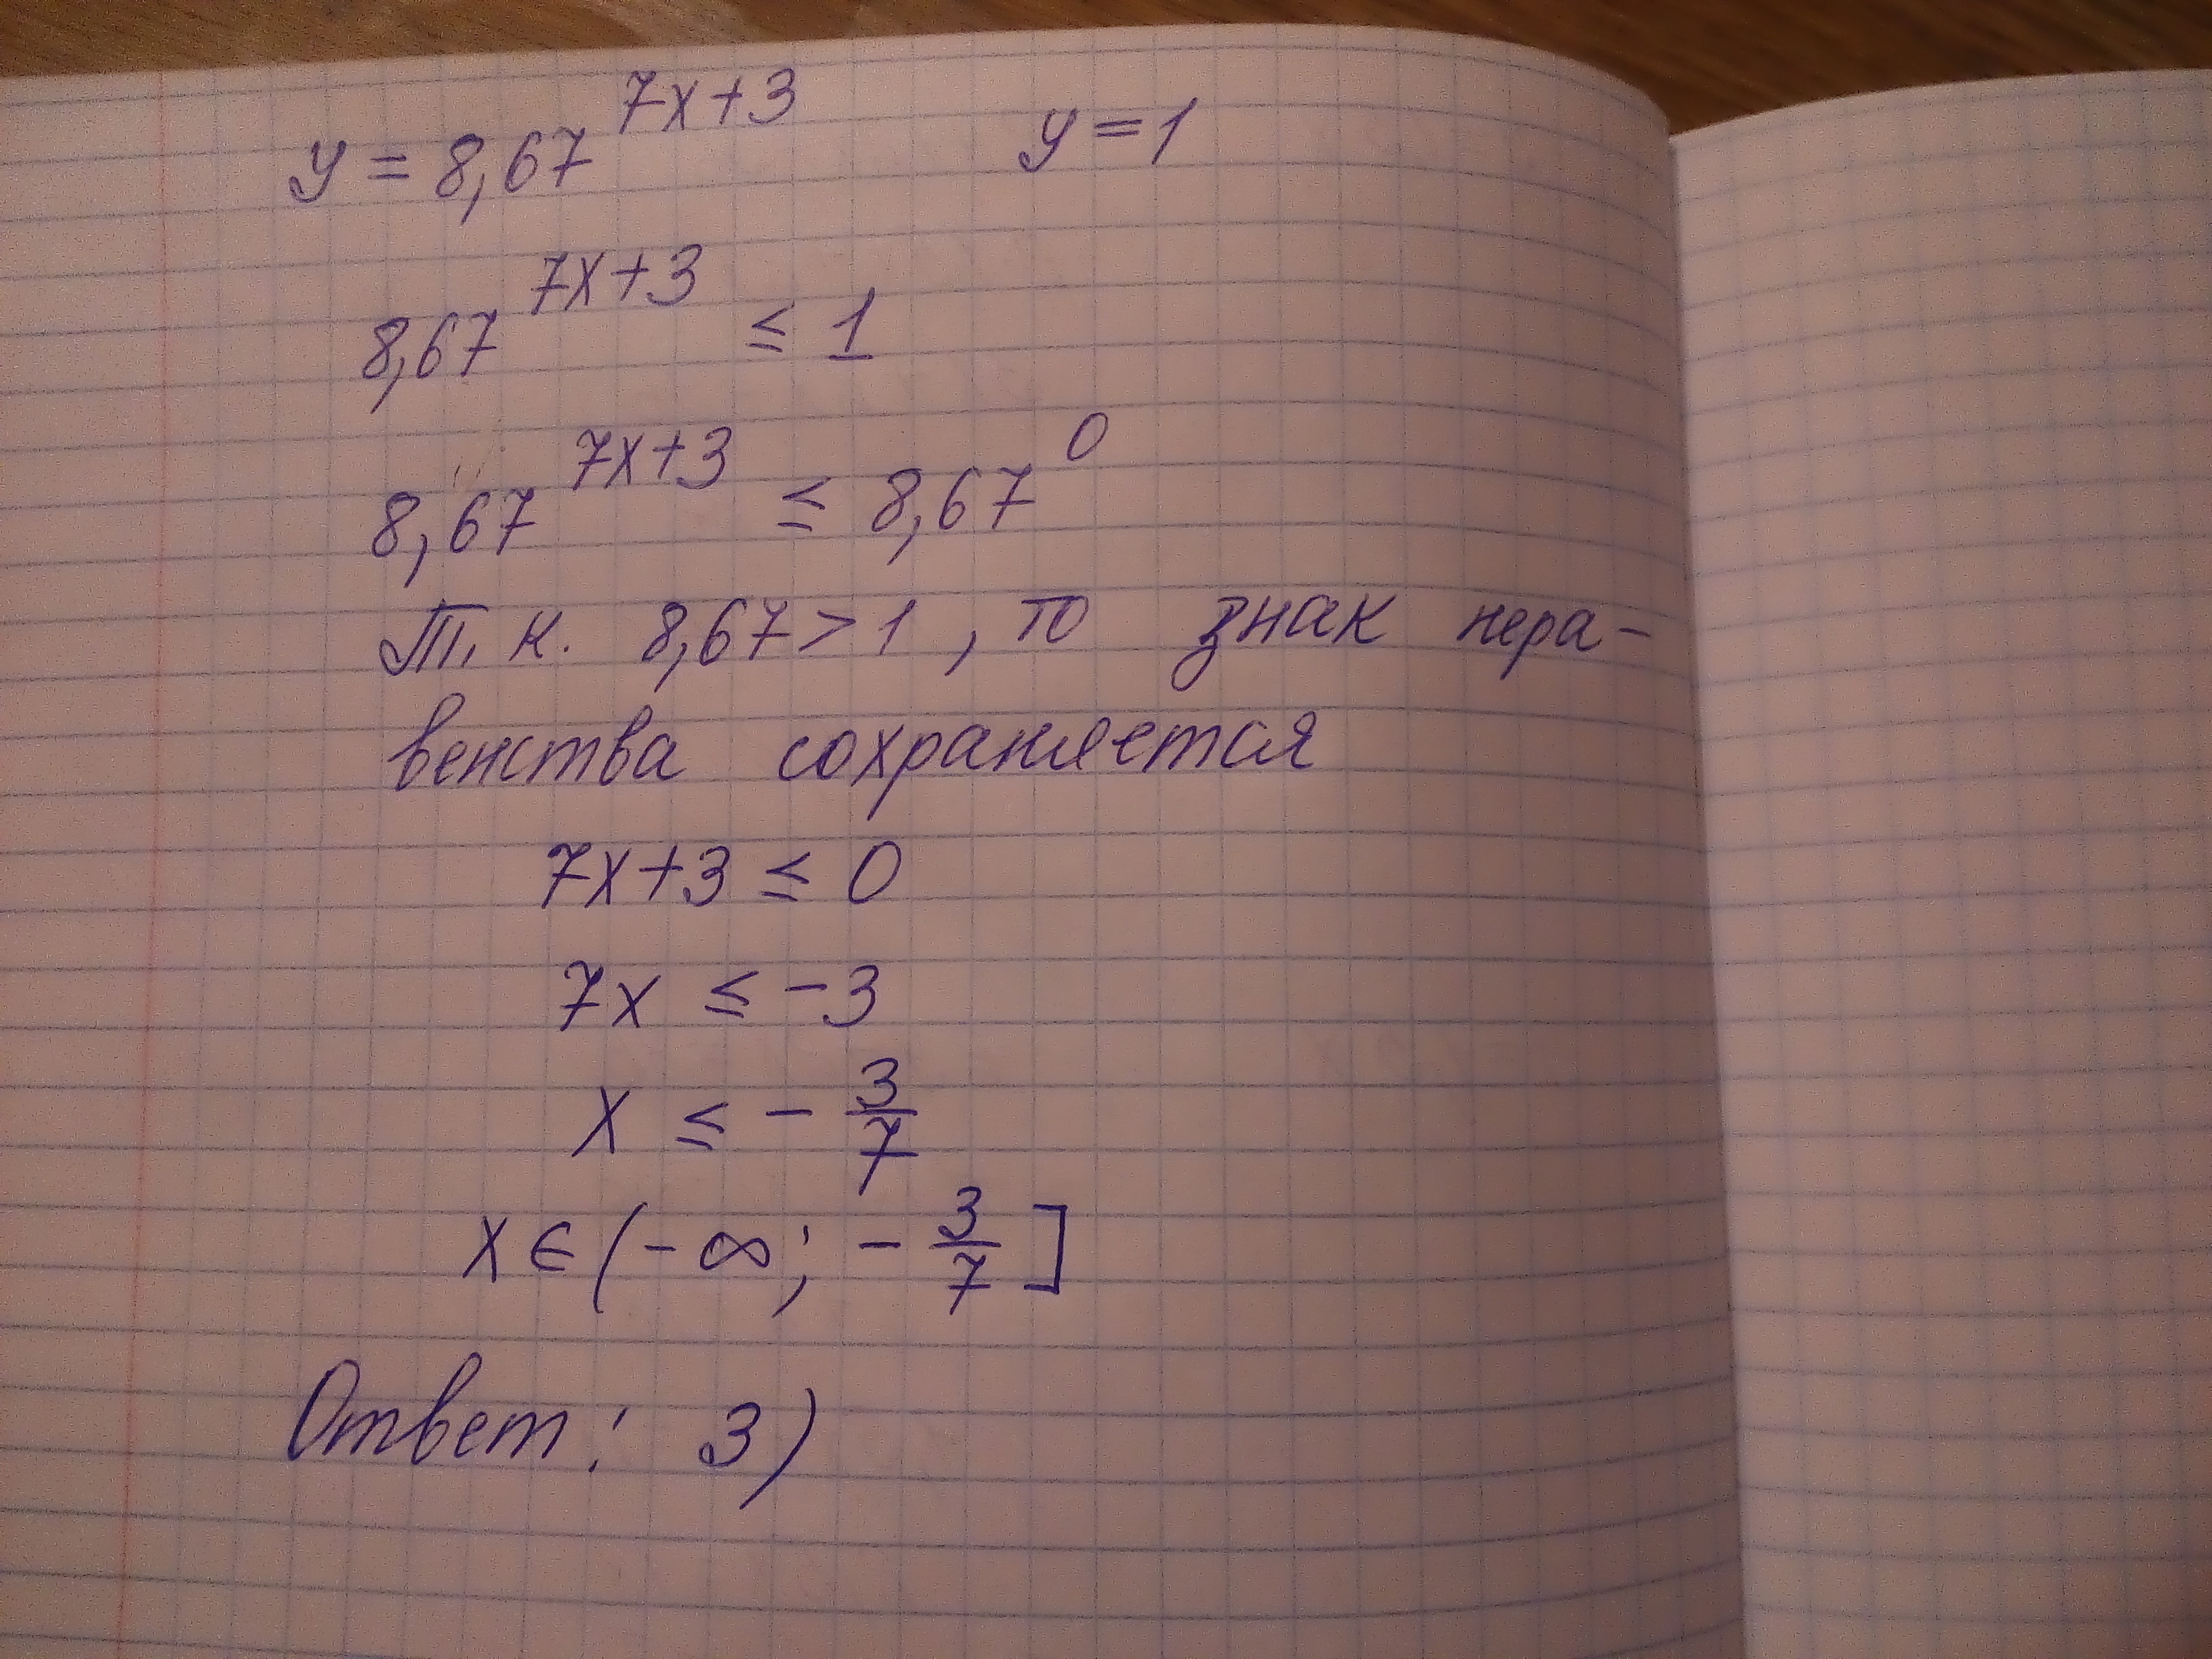 y = 8,67^(7x+3)   y = 1
8,67^(7x+3) ≤ 1
8,67^(7x+3) ≤ 8,67^0
Т. к. 8,67 > 1, то знак нера-
венства сохраняется
7x+3 ≤ 0
7x ≤ -3
x ≤ - 3/7
x ∈ (-∞; - 3/7]
Ответ: 3)